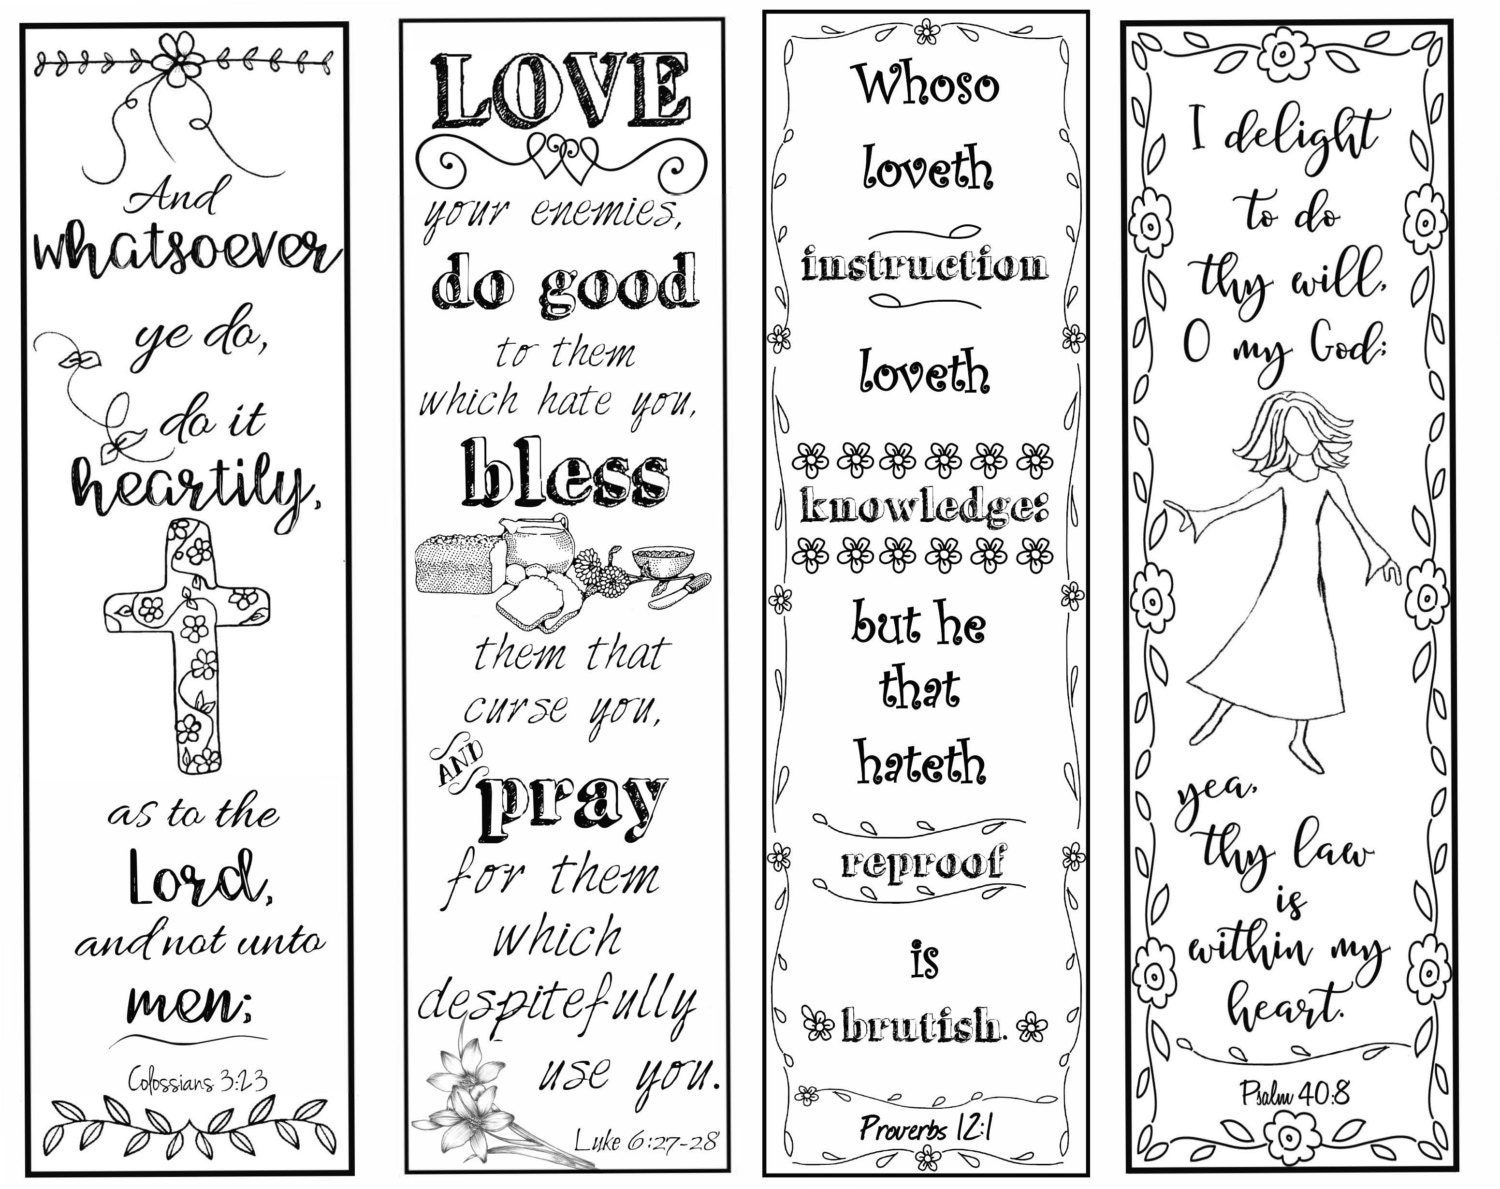 And
whatsoever
ye do,
do it
heartily,
as to the
Lord,
and not unto
men;
Colossians 3:23
LOVE
your enemies,
do good
to them
which hate you,
bless
them that
curse you,
AND
pray
for them
which
despitefully
use you.
Luke 6:27-28
Whoso
loveth
instruction
loveth
knowledge:
but he
that
hateth
reproof
is
brutish.
Proverbs 12:1
I delight
to do
thy will,
O my God:
yea,
thy law
is
within my
heart.
Psalm 40:8